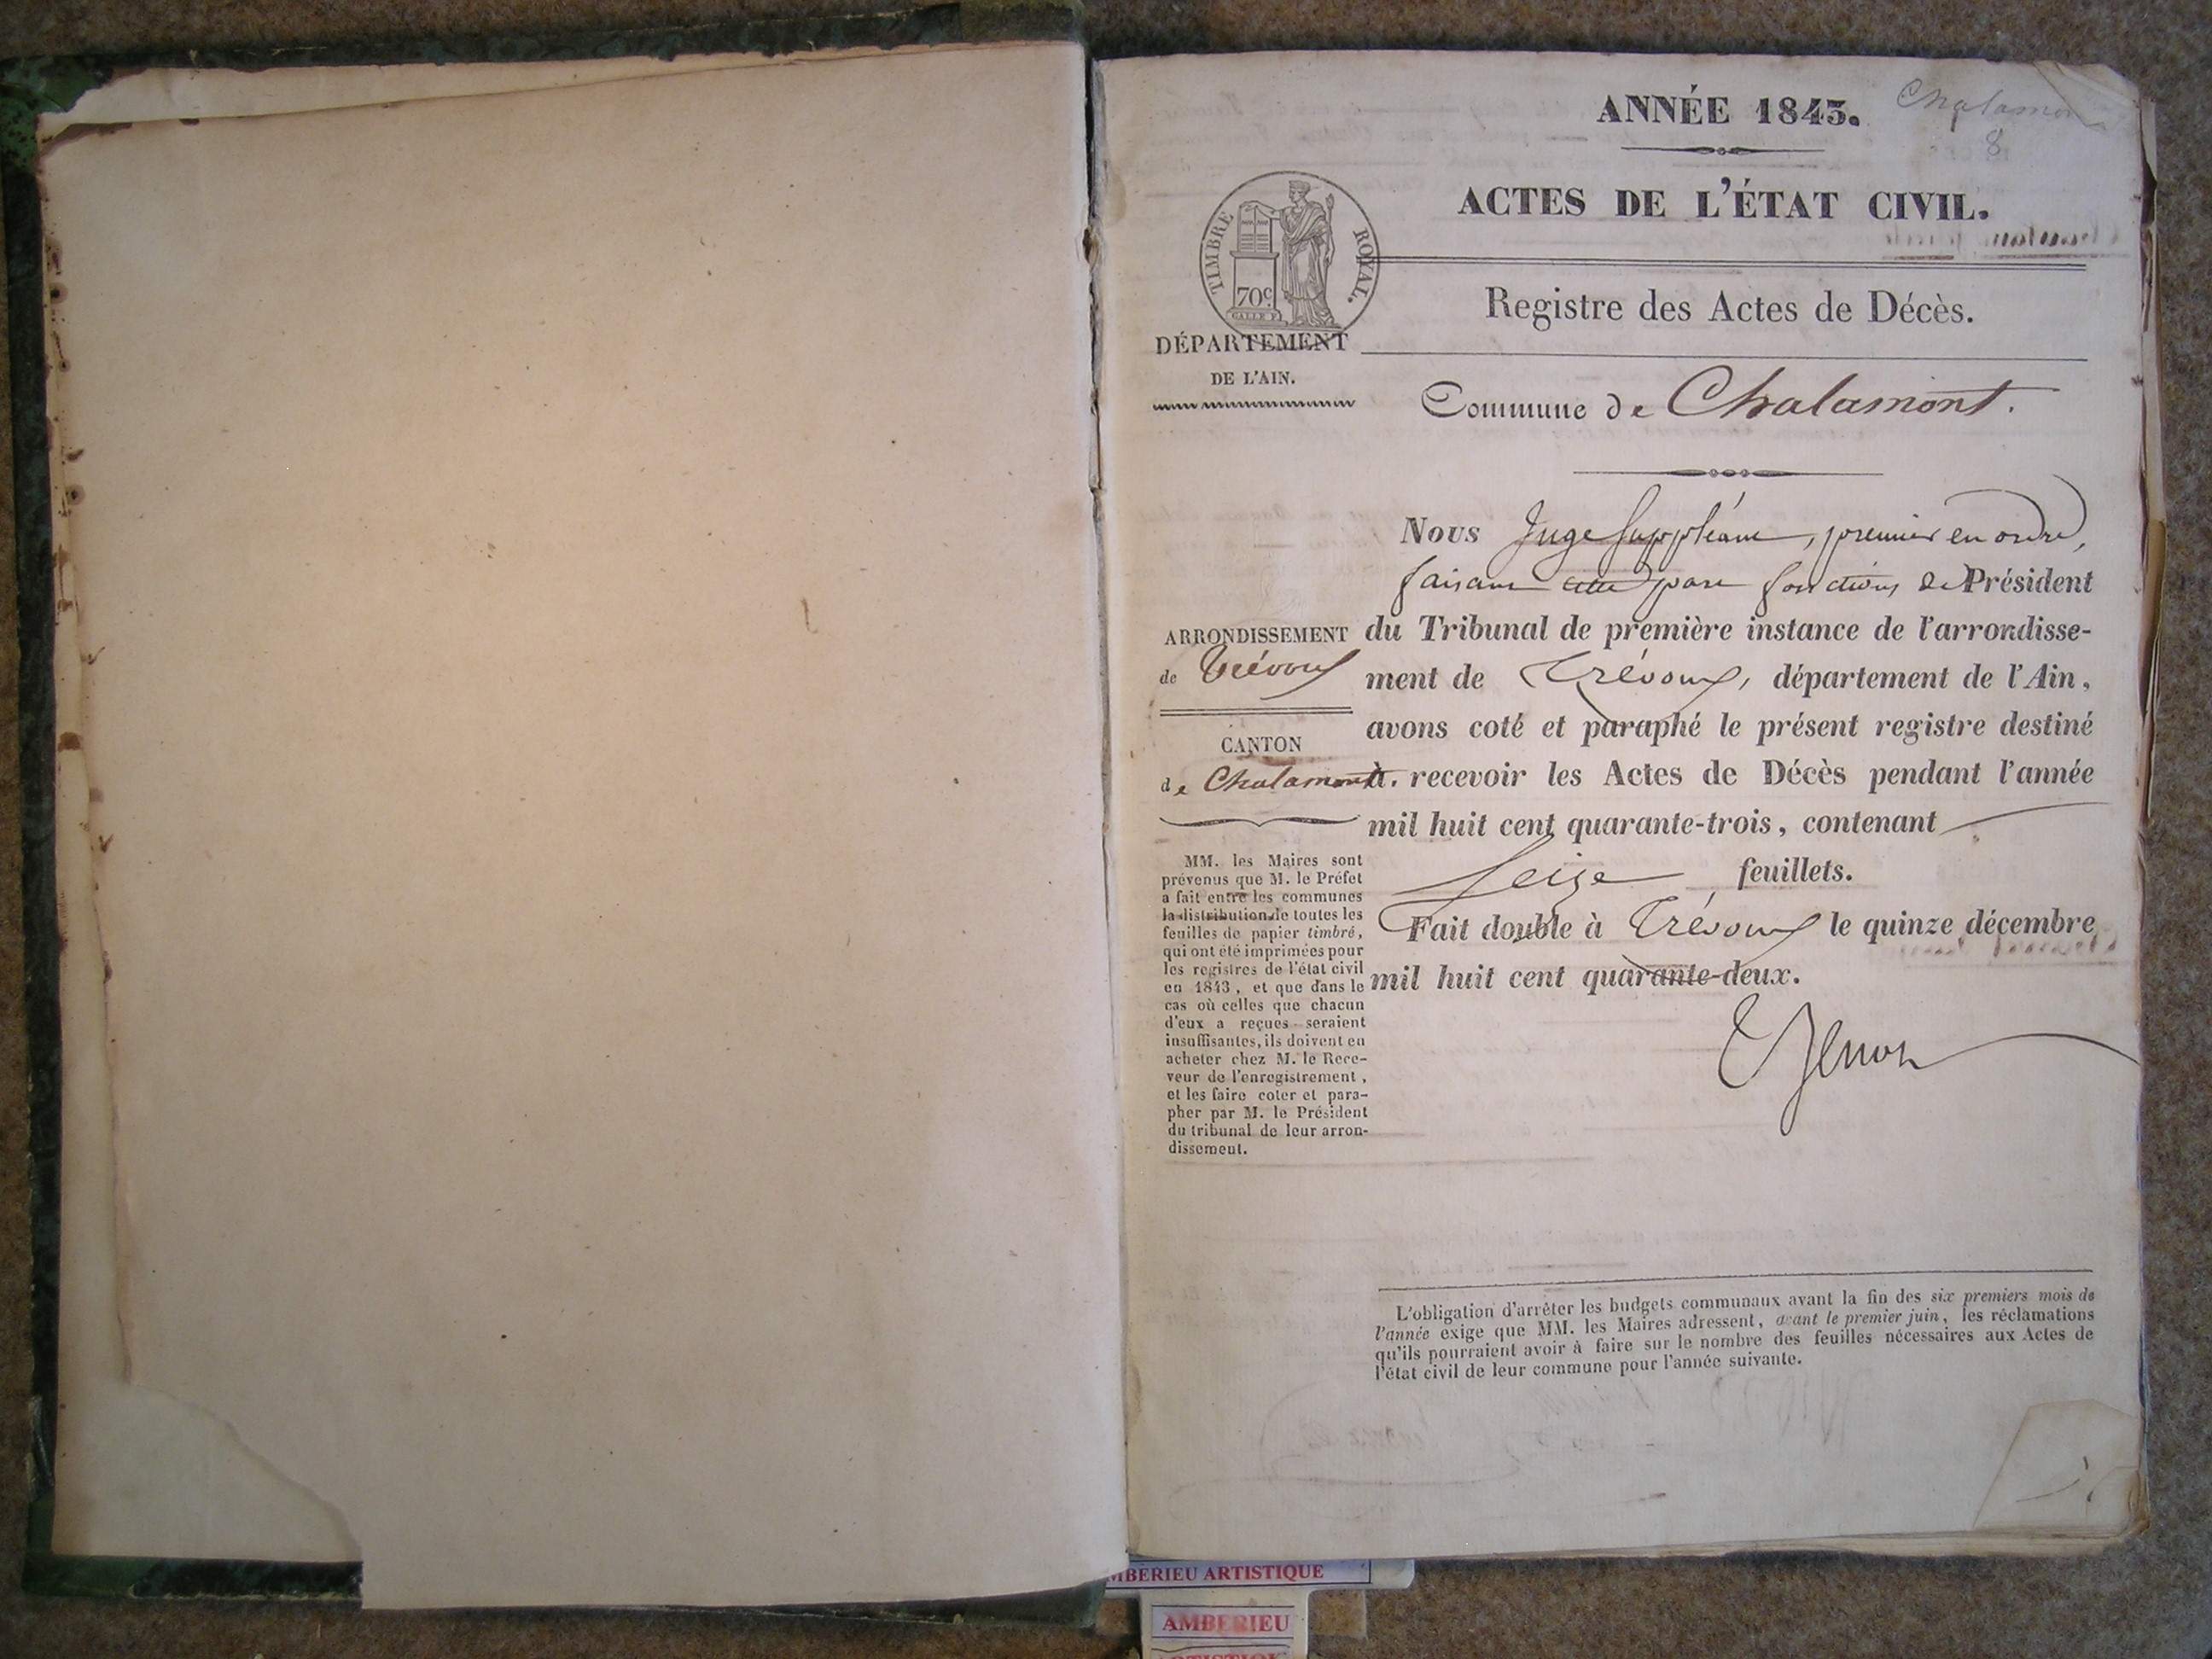 ANNÉE 1843.
Chalamon
8
ACTES DE L'ÉTAT CIVIL.
TIMBRE ROYAL.
70c
Registre des Actes de Décès.
DÉPARTEMENT
DE L'AIN.
Commune de Chalamont.
Nous Juge suppléant, premier en ordre,
faisant fonctions de Président
du Tribunal de première instance de l'arrondisse-
ment de Trévoux, département de l'Ain,
avons coté et paraphé le présent registre destiné
à recevoir les Actes de Décès pendant l'année
mil huit cent quarante-trois, contenant
Seize feuillets.
Fait double à Trévoux le quinze décembre
mil huit cent quarante-deux.
ARRONDISSEMENT
de Trévoux
CANTON
de Chalamont.
MM. les Maires sont
prévenus que M. le Préfet
a fait entre les communes
la distribution de toutes les
feuilles de papier timbré,
qui ont été imprimées pour
les registres de l'état civil
en 1843, et que dans le
cas où celles que chacun
d'eux a reçues seraient
insuffisantes, ils doivent en
acheter chez M. le Rece-
veur de l'enregistrement,
et les faire coter et para-
pher par M. le Président
du tribunal de leur arron-
dissement.
L'obligation d'arrêter les budgets communaux avant la fin des six premiers mois de
l'année exige que MM. les Maires adressent, avant le premier juin, les réclamations
qu'ils pourraient avoir à faire sur le nombre des feuilles nécessaires aux Actes de
l'état civil de leur commune pour l'année suivante.
MBERIEU ARTISTIQUE
AMBERIEU